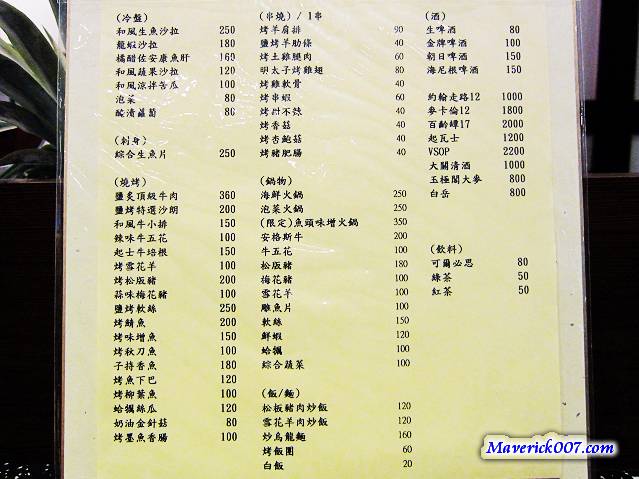 (冷盤)
和風生魚沙拉 250
龍蝦沙拉 180
橘醋佐安康魚肝 160
和風蔬果沙拉 120
和風涼拌苦瓜 100
泡菜 80
醃漬蘿蔔 80
(刺身)
綜合生魚片 250
(燒烤)
鹽炙頂級牛肉 360
鹽烤特選沙朗 200
和風牛小排 150
辣味牛五花 100
起士牛培根 150
烤雪花羊 100
烤松阪豬 200
蒜味梅花豬 100
鹽烤軟絲 200
烤鯖魚 200
烤味增魚 150
烤秋刀魚 100
子持香魚 180
烤魚下巴 120
烤柳葉魚 100
蛤蠣絲瓜 120
奶油金針菇 80
烤墨魚香腸 100
(串燒) / 1串
烤羊肩排 90
鹽烤羊肋條 40
烤土雞腿肉 60
明太子烤雞翅 80
烤雞軟骨 40
烤串蝦 60
烤甜不辣 40
烤香菇 40
烤杏鮑菇 40
烤豬肥腸 40
(鍋物)
海鮮火鍋 250
泡菜火鍋 250
(限定)魚頭味增火鍋 350
安格斯牛 200
牛五花 100
松阪豬 180
梅花豬 100
雪花羊 100
雕魚片 100
軟絲 150
鮮蝦 120
蛤蠣 100
綜合蔬菜 100
(飯/麵)
松板豬肉炒飯 120
雪花羊肉炒飯 120
炒烏龍麵 160
烤飯團 60
白飯 20
(酒)
生啤酒 80
金牌啤酒 100
朝日啤酒 150
海尼根啤酒 150
約翰走路12 1000
麥卡倫12 1800
百齡罈17 2000
起瓦士 1200
VSOP 2200
大關清酒 1000
玉極閣大麥 800
白岳 800
(飲料)
可爾必思 80
綠茶 50
紅茶 50
Maverick007.com